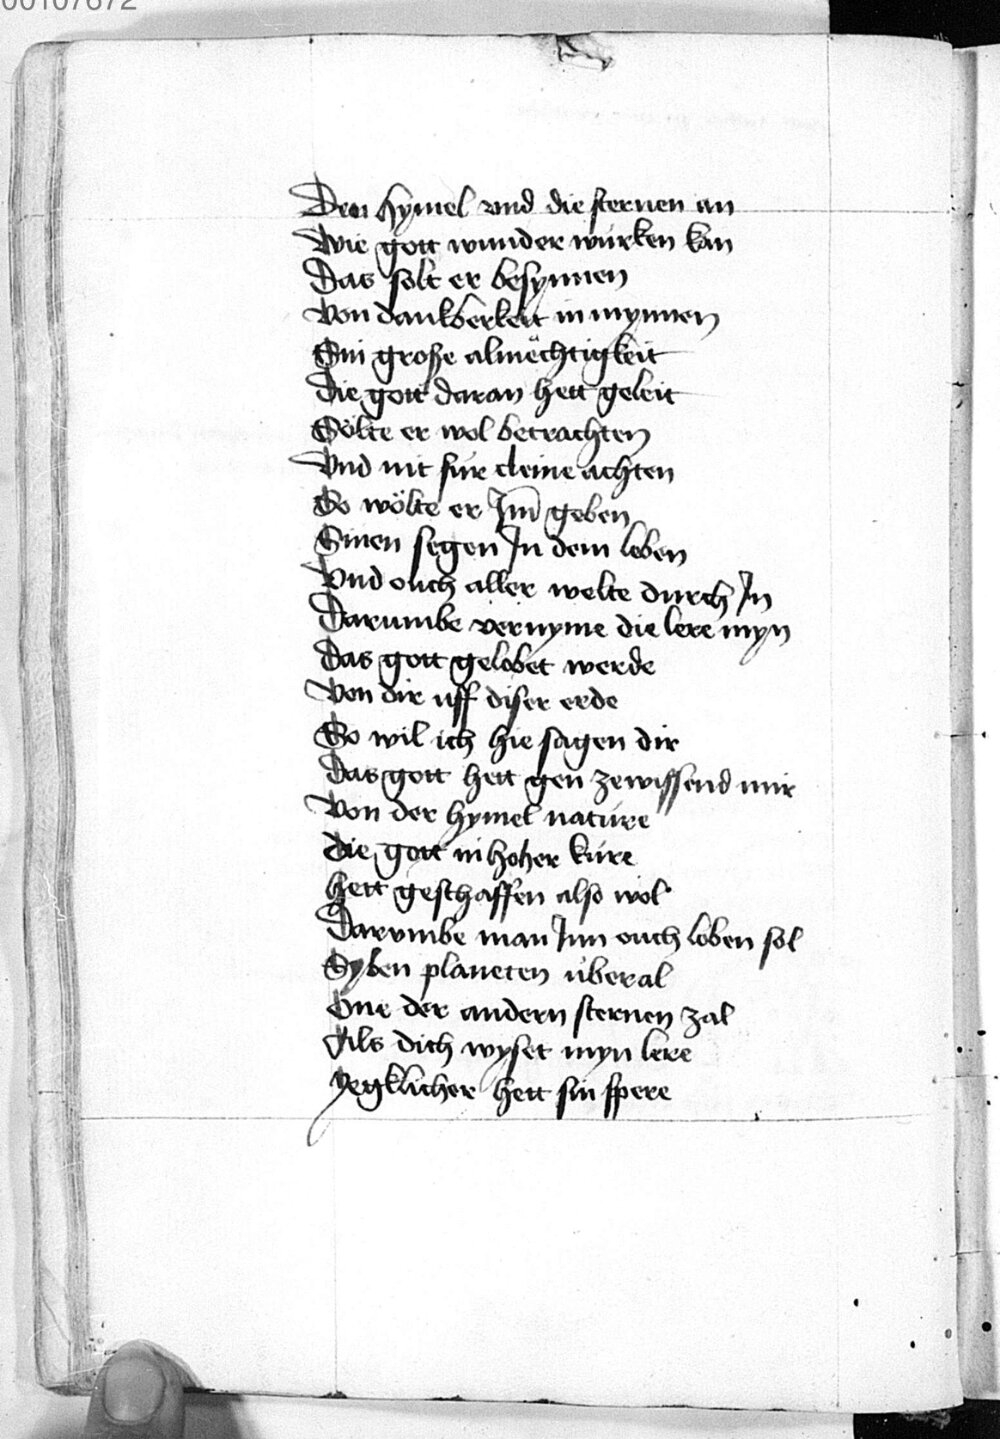 00107672
Den hymel vnd die sternen an
Wie gott wunder würken kan
Das solt er besynnen
Von dankberkeit in mynnen
Sin große almëchtigkeit
Die gott daran hett geleit
Sölte er wol betrachten
Vnd nit für cleine achten
So wölte er Jm̄ geben
Sinen segen Jn dem leben
Vnd ouch aller welte durch Jn
Darumbe vernyme die lere myn
Das gott gelobet werde
Von dir uff diser erde
So wil ich hie sagen dir
Das gott hett gen zewissend mir
Von der hymel natúre
die gott in hoher kúre
hett geschaffen also wol
Darvmbe man Jnn ouch loben sol
Syben planeten úberal
One der andern sternen zal
Als dich wyset myn lere
Yegklicher hett sin spere